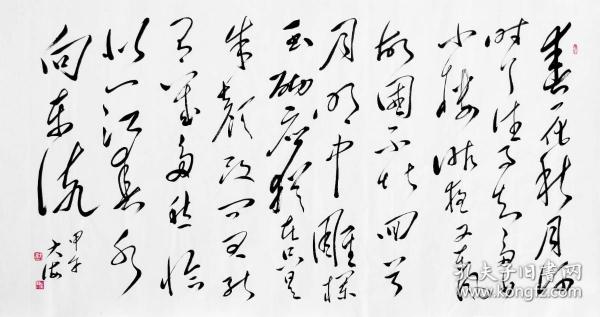 春花秋月何
时了往事知多少
小楼昨夜又东风
故國不堪回首
月明中雕栏
玉砌应犹在只是
朱颜改问君能
有几多愁恰
似一江春水
向东流
甲午
大海
孔夫子旧书网